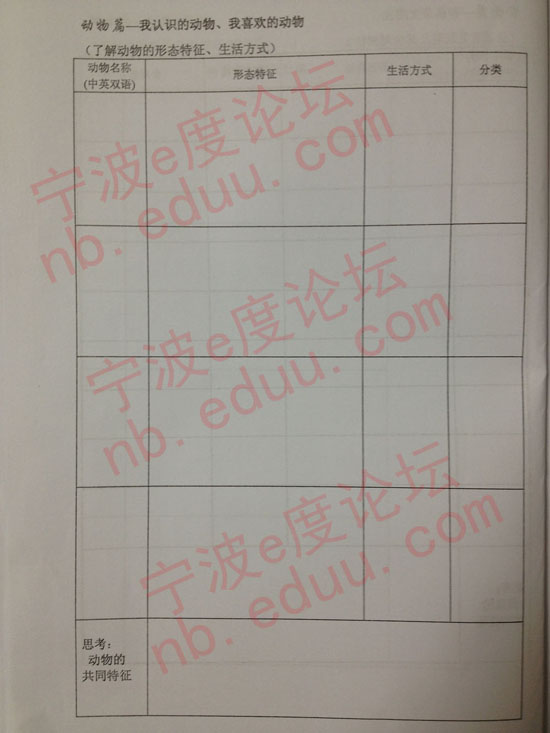 动物篇—我认识的动物、我喜欢的动物
（了解动物的形态特征、生活方式）
动物名称
(中英双语)
形态特征
生活方式
分类
宁波e度论坛
nb. eduu. com
宁波e度论坛
nb. eduu. com
宁波e度论坛
nb. eduu. com
思考：
动物的
共同特征